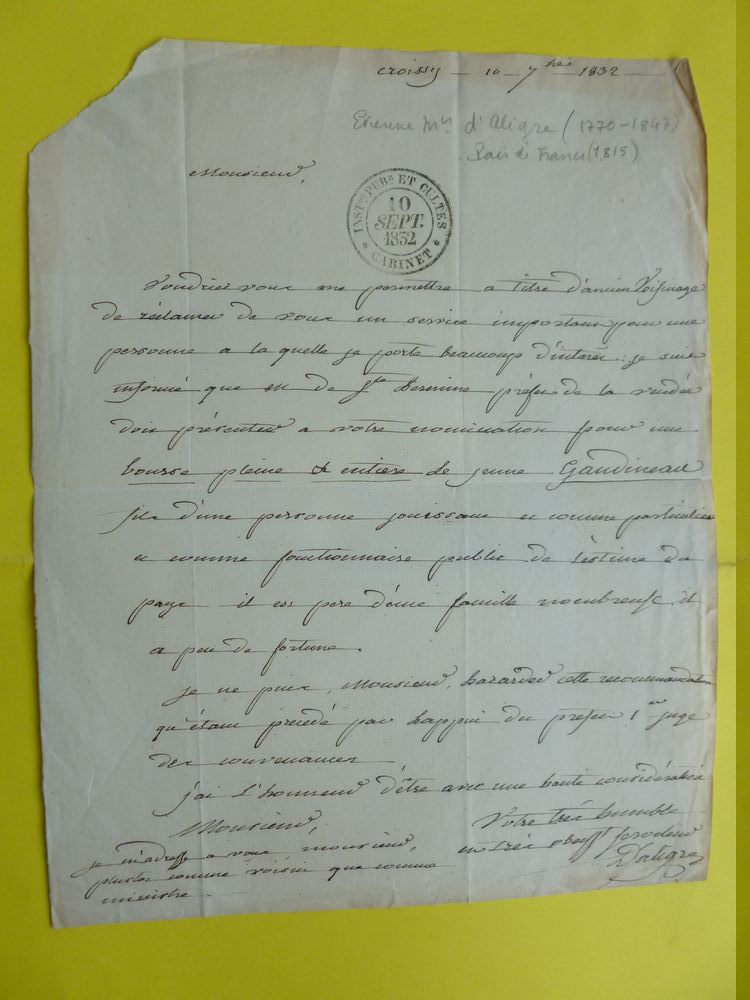 croissy — 10 — 7bre — 1832 —
Etienne Mis d'Aligre (1770-1847)
Pair de France (1815)
Monsieur,
INSTon PUBe ET CULTES
10
SEPT.
1832
CABINET
Voudriez vous me permettre a titre d'ancien Voisinage
de réclamer de vous un service important pour une
personne a la quelle je porte beaucoup d'intérêt : je suis
informé que m de Ste hermine préfet de la vendée
doit présenter a votre nomination pour une
bourse pleine & entière le jeune Gandineau
fils d'une personne jouissant et comme particulier
et comme fonctionnaire public de l'estime du
pays il est pere d'une famille nombreuse, et
a peu de fortune.
je ne puis, Monsieur, hazarder cette recommandation
qu'étant précédé par l'appui du préfet 1er juge
des convenances
j'ai l'honneur d'être avec une haute considération
Monsieur,
Votre très humble
et très obeisst serviteur
D'aligre
je m'adresse a vous monsieur,
plustot comme voisin que comme
ministre